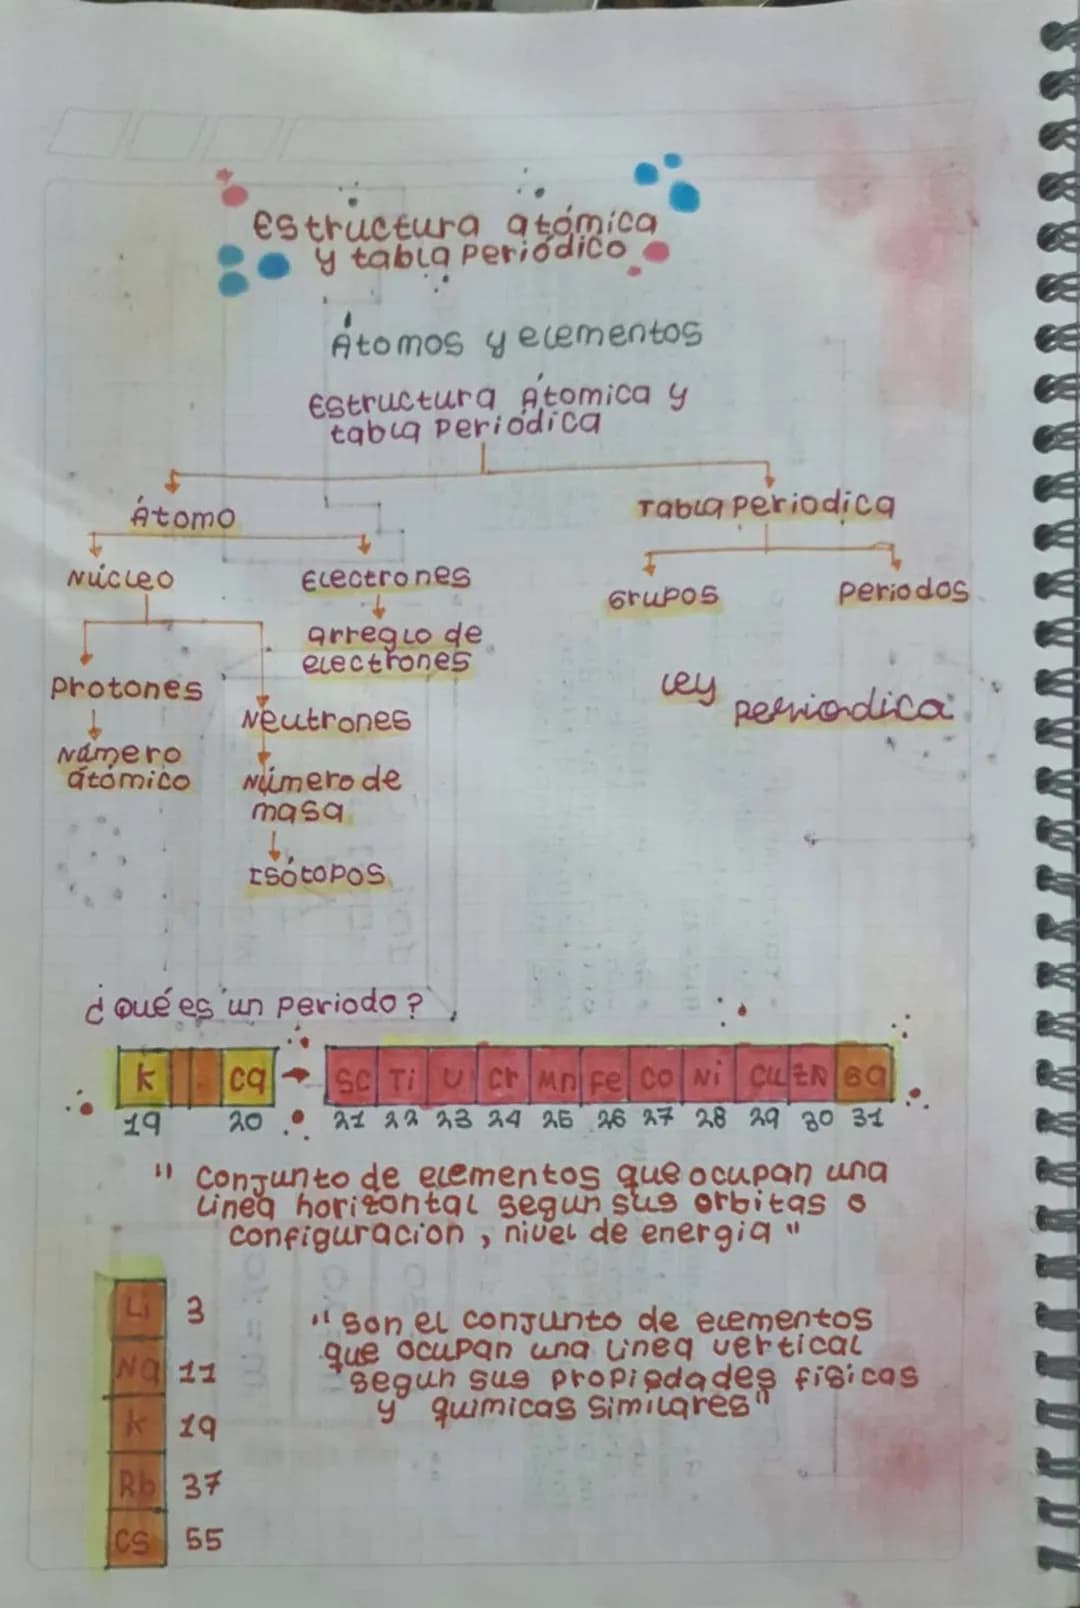 Estructura atómica
y tabla periódico
Átomos y elementos
Estructura Átomica y
tabla periódica
Átomo
Tabla periodica
Núcleo
Electrones
Grupos
Periodos
arreglo de
electrones
Protones
Ley
periodica
Neutrones
Número
átómico
Número de
masa
Isótopos
¿Qué es un periodo?
K Ca → Sc Ti V Cr Mn Fe Co Ni Cu Zn Ga
19 20 21 22 23 24 25 26 27 28 29 30 31
" Conjunto de elementos que ocupan una
linea horizontal segun sus orbitas o
configuracion, nivel de energia "
Li 3
Na 11
K 19
Rb 37
Cs 55
" Son el conjunto de elementos
que ocupan una linea vertical
segun sus propiedades fisicas
y quimicas similares"